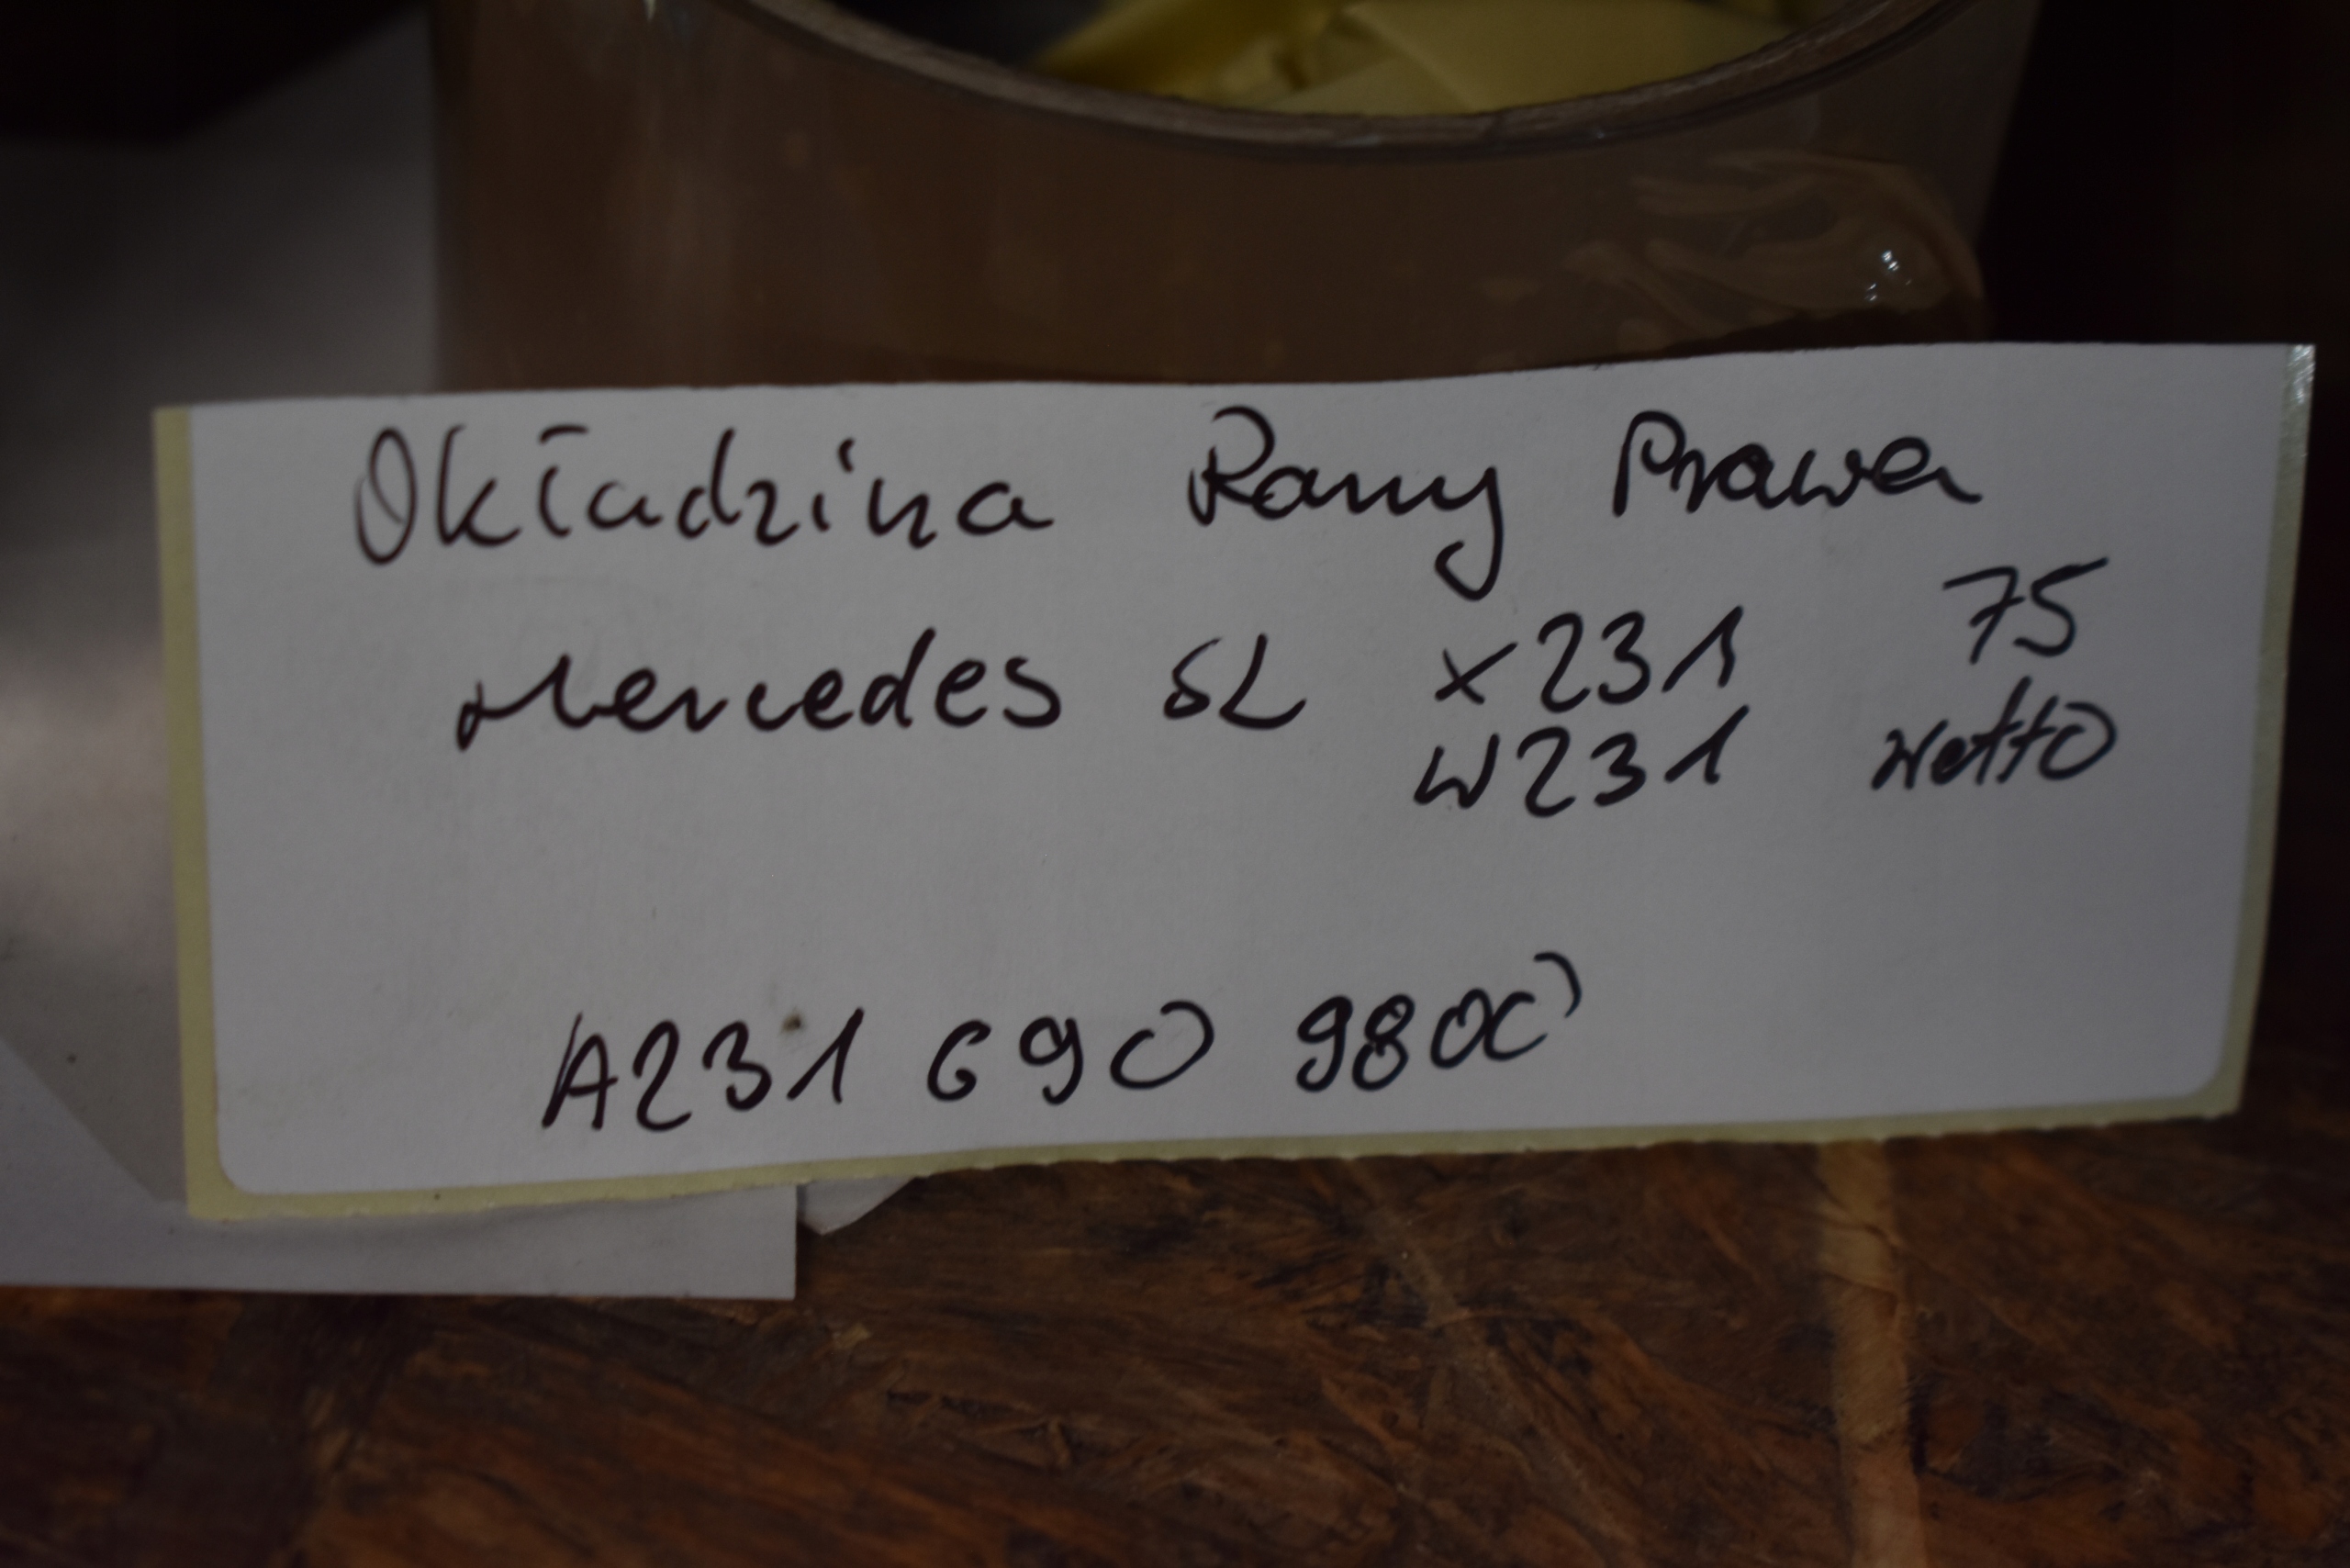 Okładzina Ramy Prawa
Mercedes SL X231 75
W231 netto
A231 690 9800